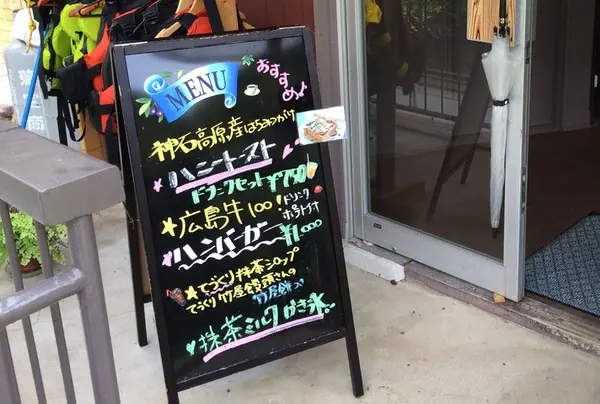 MENU
おすすめ♪
神石高原産はちみつがけ
ハニートースト
ドリンクセット ¥750
広島牛100!
ドリンク
ポテト付
ハンバーガー ¥1000
★てづくり抹茶シロップ
てづくり竹屋饅頭さんの
抹茶ミルクかき氷